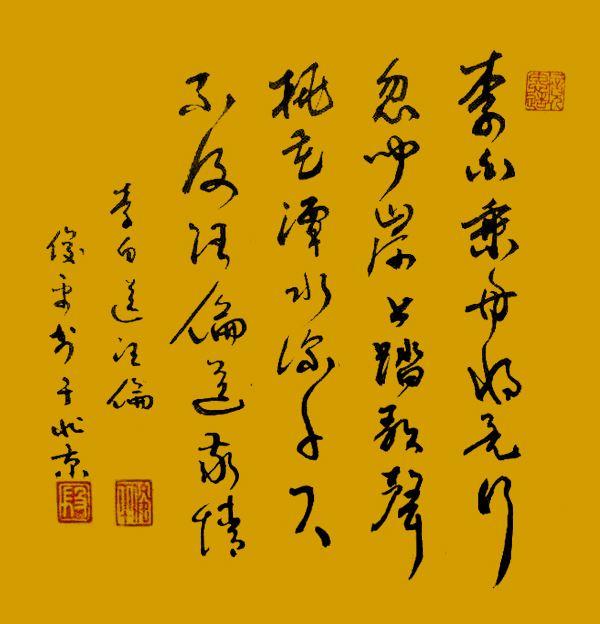 李白乘舟将欲行
忽闻岸上踏歌声
桃花潭水深千尺
不及汪伦送我情
李白送汪伦
俊平书于北京